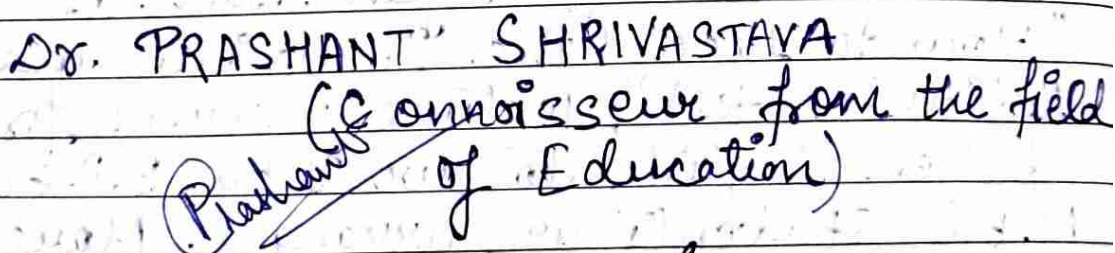 Dr. PRASHANT SHRIVASTAVA
(Connoisseur from the field
of Education)
Prashant